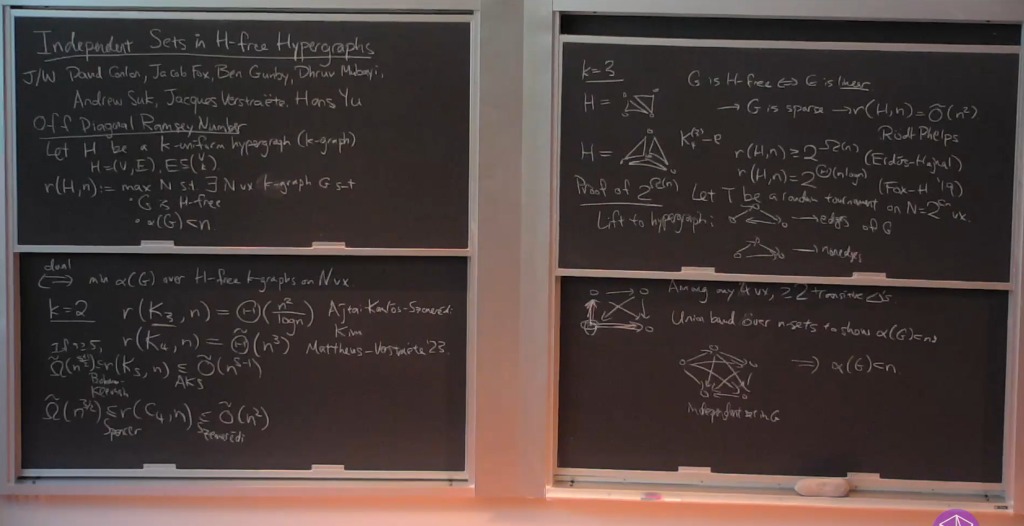 Independent Sets in H-free Hypergraphs
J/W David Conlon, Jacob Fox, Ben Gunby, Dhruv Mubayi,
Andrew Suk, Jacques Verstraëte, Hans Yu
Off Diagonal Ramsey Number
Let H be a k-uniform hypergraph (k-graph)
H=(V,E), E⊆(V k).
r(H,n):= max N s.t. ∃ N vx k-graph G s.t
· G is H-free
· α(G)<n
dual
⟺ min α(G) over H-free k-graphs on N vx.
k=2 r(K₃,n) = Θ(n²/logn) Ajtai-Komlós-Szemerédi
Kim
r(K₄,n) = Θ̃(n³) Mattheus-Verstraëte '23.
If s≥5,
≤ r(K_s,n) ≤ Õ(n^{s-1})
AKS
Ω̃(n^{3/2}) ≤ r(C₄,n) ≤ Õ(n²)
Spencer Szemerédi
k=3
H = G is H-free ⟺ G is linear
→ G is sparse → r(H,n) = Õ(n²)
Rödl Phelps
H = K₄^{(3)}-e
r(H,n) ≥ 2^{Ω(n)} (Erdős-Hajnal)
r(H,n) = 2^{Θ(nlogn)} (Fox-H '19)
Proof of 2^{Ω(n)} Let T be a random tournament on N=2^{cn} vx.
Lift to hypergraph: → edges of G
→ nonedges
Among any 4 vx, ≥2 transitive Δ's
Union bound over n-sets to show α(G)<n
⟹ α(G)<n.
independent set in G